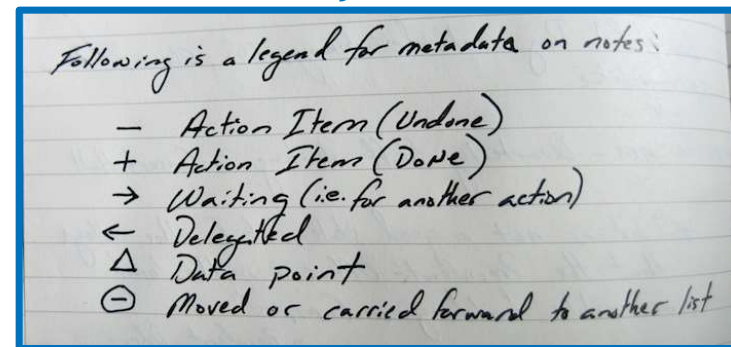 Following is a legend for metadata on notes:
— Action Item (Undone)
+ Action Item (DoNe)
→ Waiting (i.e. for another action)
← Delegated
△ Data point
⊖ Moved or carried forward to another list